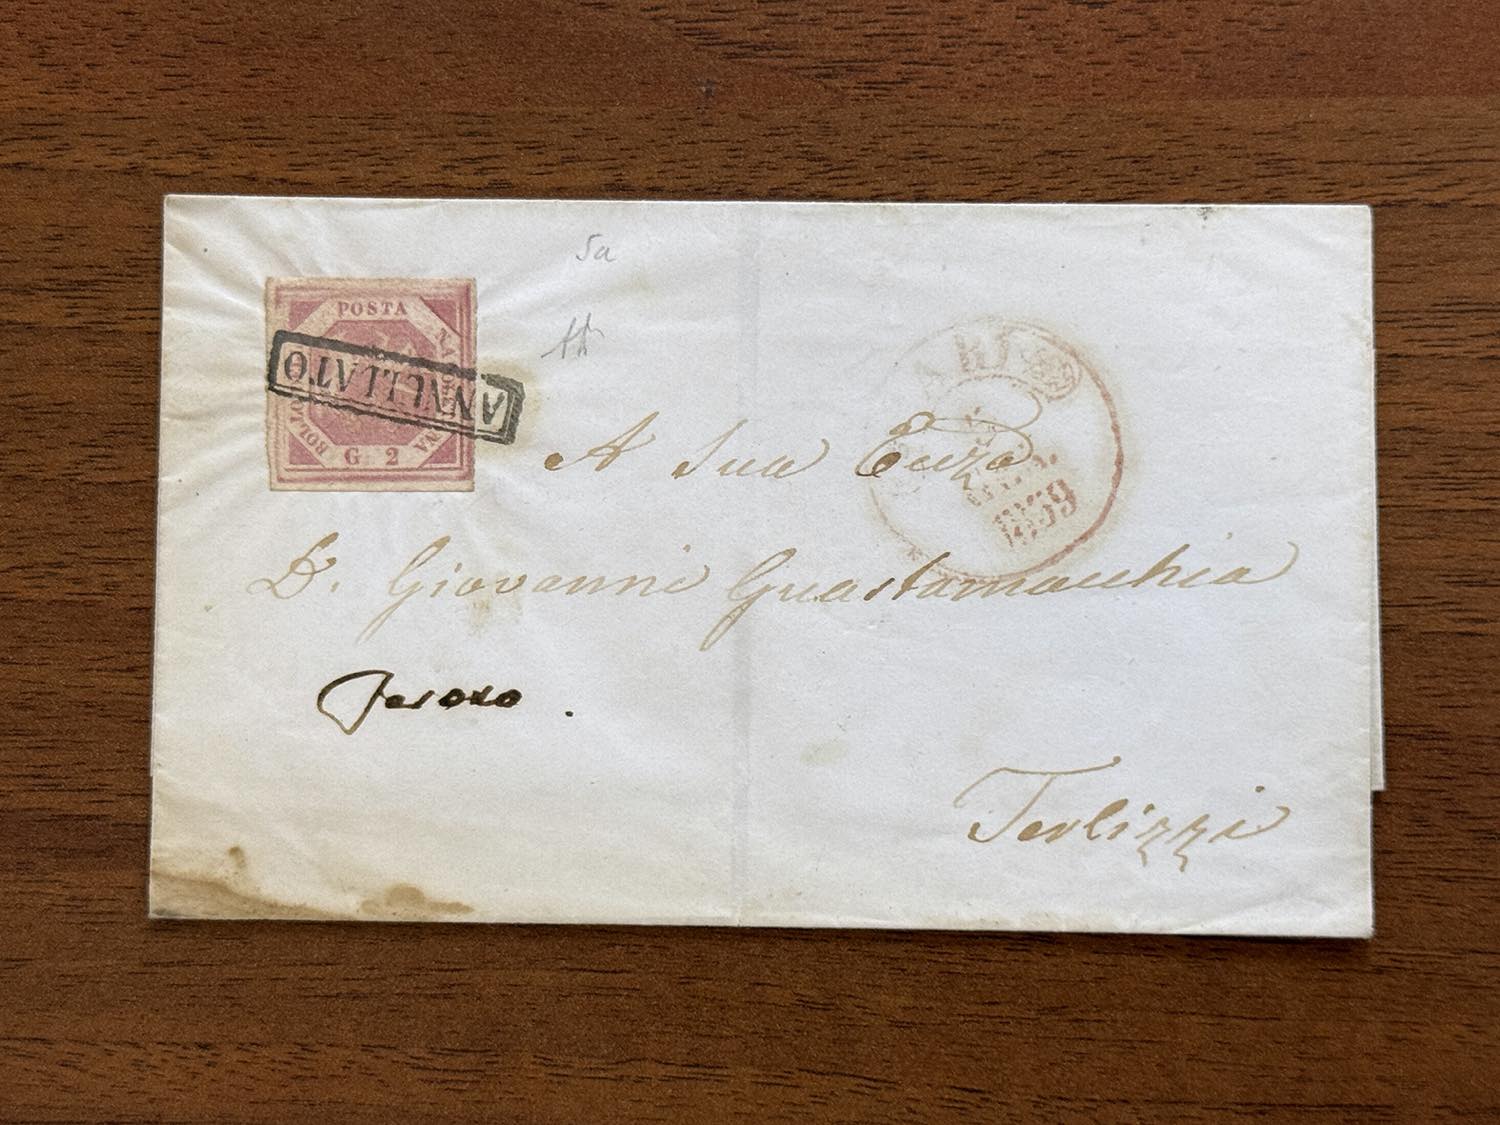 5a
POSTA
NAPOLETANA
BOLLO
G. 2
ANNULLATO
BARI
1859
A Sua Ecczа
D. Giovanni Guastamacchia
Terlizzi